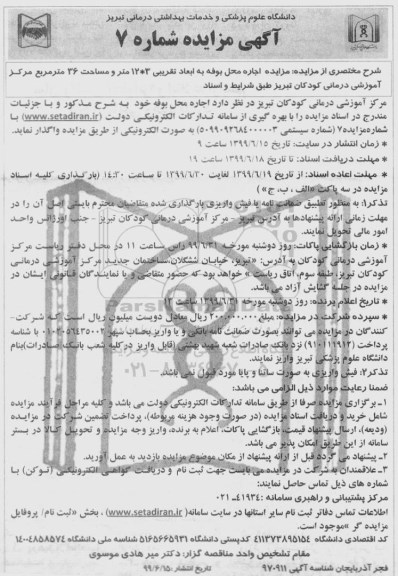 دانشگاه علوم پزشکی و خدمات بهداشتی درمانی تبریز
آگهی مزایده شماره ۷
شرح مختصری از مزایده: مزایده اجاره محل بوفه به ابعاد تقریبی ۳*۱۲ متر و مساحت ۳۶ مترمربع مرکز
آموزشی درمانی کودکان تبریز طبق شرایط و اسناد
مرکز آموزشی درمانی کودکان تبریز در نظر دارد اجاره محل بوفه خود به شرح مذکور و با جزئیات
مندرج در اسناد مزایده را با بهره گیری از سامانه تدارکات الکترونیکی دولت (www.setadiran.ir) با
شماره مزایده ۷ (شماره سیستمی ۵۰۹۹۰۹۲۶۸۴۰۰۰۰۰۳) به صورت الکترونیکی از طریق مزایده واگذار نماید.
* زمان انتشار در سایت: تاریخ ۱۳۹۹/۶/۱۵ ساعت ۹
* مهلت دریافت اسناد: تا تاریخ ۱۳۹۹/۶/۱۸ ساعت ۱۹
* مهلت اعاده اسناد: از تاریخ ۱۳۹۹/۶/۱۹ لغایت ۱۳۹۹/۶/۳۰ تا ساعت ۱۴:۳۰ (بارگذاری کلیه اسناد
مزایده در سه پاکت «الف، ب، ج»)
تذکر۱: به منظور تطبیق ضمانت نامه یا فیش واریزی بارگذاری شده متقاضیان محترم بایستی اصل آن را در
مهلت زمانی ارائه پیشنهادها به آدرس تبریز - مرکز آموزشی درمانی کودکان تبریز - جنب اورژانس واحد
امور مالی تحویل نمایند.
* زمان بازگشایی پاکات: روز دوشنبه مورخه ۹۹/۶/۳۱ راس ساعت ۱۱ در محل دفتر ریاست مرکز
آموزشی درمانی کودکان به آدرس: «تبریز، خیابان ششگلان، ساختمان جدید مرکز آموزشی درمانی
کودکان تبریز، طبقه سوم، اتاق ریاست» خواهد بود که حضور متقاضی و یا نمایندگان قانونی ایشان در
مزایده در جلسه گشایش آزاد می باشد.
* تاریخ اعلام برنده: روز دوشنبه مورخه ۱۳۹۹/۶/۳۱ ساعت ۱۳
* سپرده شرکت در مزایده: مبلغ ۲۰۰,۰۰۰,۰۰۰ ریال معادل دویست میلیون ریال است که شرکت-
کنندگان در مزایده می توانند بصورت ضمانت نامه بانکی و یا واریز بحساب شبهو با شناسه
پرداخت نزد بانک صادرات شعبه شهید بهشتی (قابل واریز در کلیه شعب بانک صادرات) بنام
دانشگاه علوم پزشکی تبریز واریز نمایند.
تذکر۲: فیش واریزی به صورت ساتنا و پایا مورد قبول نمی باشد.
ضمنا رعایت موارد ذیل الزامی می باشد:
۱ـ برگزاری مزایده صرفا از طریق سامانه تدارکات الکترونیکی دولت می باشد و کلیه مراحل فرآیند مزایده
شامل خرید و دریافت اسناد مزایده (در صورت وجود هزینه مربوطه)، پرداخت تضمین شرکت در مزایده
(ودیعه)، ارسال پیشنهاد قیمت، بازگشایی پاکات، اعلام به برنده، واریز وجه مزایده و تحویل کالا در بستر
سامانه از این طریق امکان پذیر می باشد.
۲ـ پیشنهاد می گردد قبل از ارائه پیشنهاد از مکان موضوع مزایده بازدید به عمل آورید.
۳ـ علاقمندان به شرکت در مزایده می بایست جهت ثبت نام و دریافت گواهی الکترونیکی (توکن) با
شماره های ذیل تماس حاصل نمایند:
مرکز پشتیبانی و راهبری سامانه: ۴۱۹۳۴ـ۰۲۱
اطلاعات تماس دفاتر ثبت نام سایر استانها در سایت سامانه (www.setadiran.ir)، بخش «ثبت نام/ پروفایل
مزایده گر» موجود است.
کد اقتصادی دانشگاه ۴۱۱۳۷۳۸۹۵۱۵۴ کدپستی دانشگاه ۵۱۶۵۶۶۵۹۳۱ شناسه ملی دانشگاه ۱۴۰۰۴۸۵۸۵۷۴
مقام تشخیص واحد مناقصه گزار: دکتر میر هادی موسوی
فجر آذربایجان شناسه آگهی ۹۷۰۹۱۱ تاریخ انتشار: ۹۹/۶/۱۵